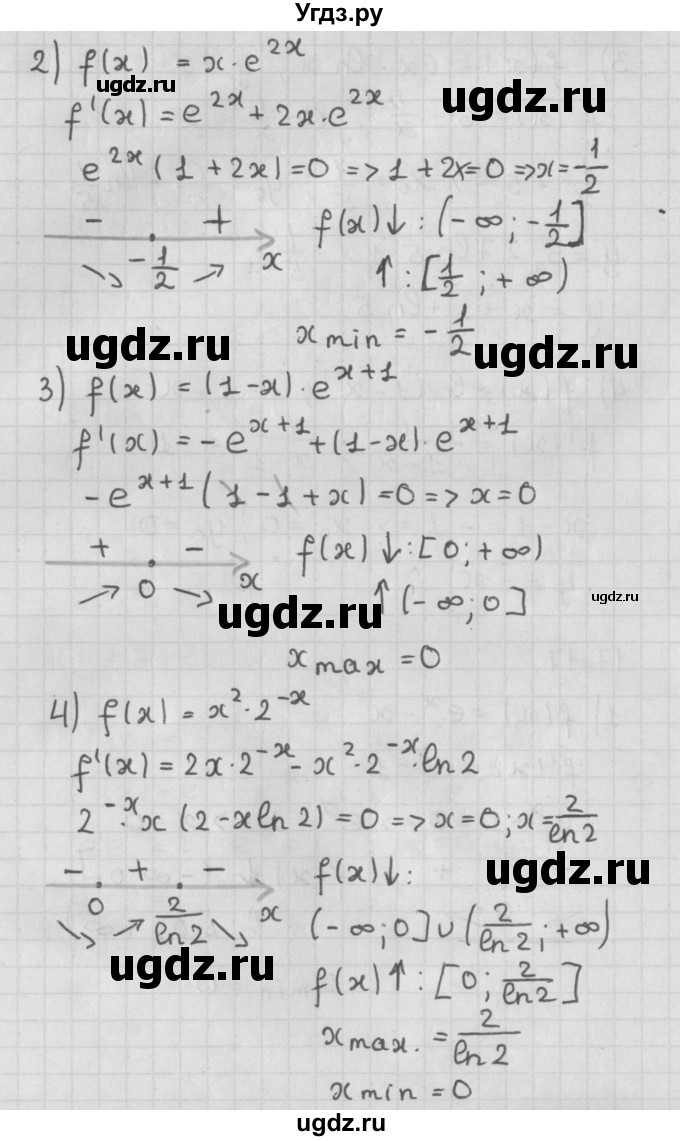 Угдз.ру
2) f(x) = x·e^{2x}
ugdz.ru ugdz.ru
f'(x) = e^{2x} + 2x·e^{2x}
e^{2x}(1 + 2x) = 0 => 1 + 2x = 0 => x = -1/2
- + f(x)↓: (-∞; -1/2]
↘ -1/2 ↗ x ↑: [1/2; +∞)
x min = -1/2
ugdz.ru ugdz.ru
3) f(x) = (1-x)·e^{x+1}
f'(x) = -e^{x+1} + (1-x)·e^{x+1}
-e^{x+1}(1-1+x) = 0 => x = 0
+ - f(x)↓: [0; +∞)
↗ 0 ↘ x ↑ (-∞; 0]
ugdz.ru ugdz.ru
x max = 0
4) f(x) = x²·2^{-x}
f'(x) = 2x·2^{-x} - x²·2^{-x}·ln2
2^{-x}·x(2-xln2) = 0 => x = 0; x = 2/ln2
- + - f(x)↓:
ugdz.ru
↘ 0 ↗ 2/ln2 ↘ x (-∞; 0]∪(2/ln2; +∞)
ugdz.ru
f(x)↑: [0; 2/ln2]
x max. = 2/ln2
x min = 0
ugdz.ru